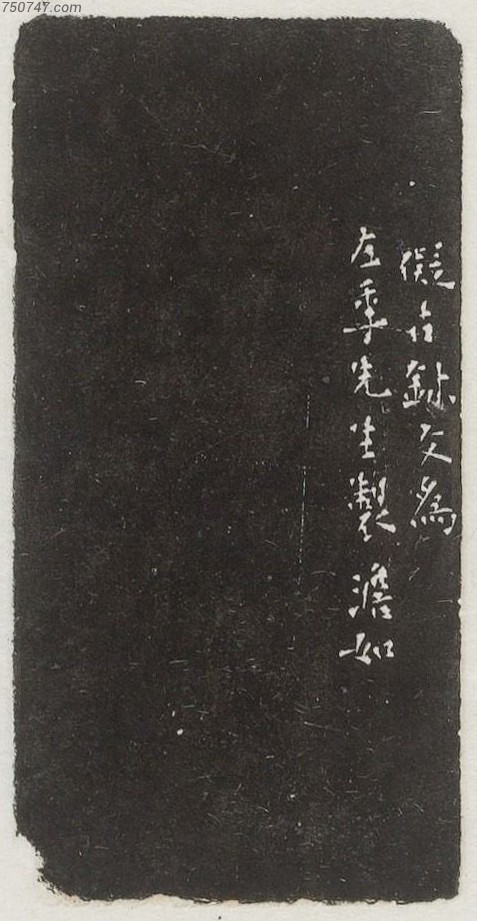 750747.com
儗古鉨文為
左季先生製澹如